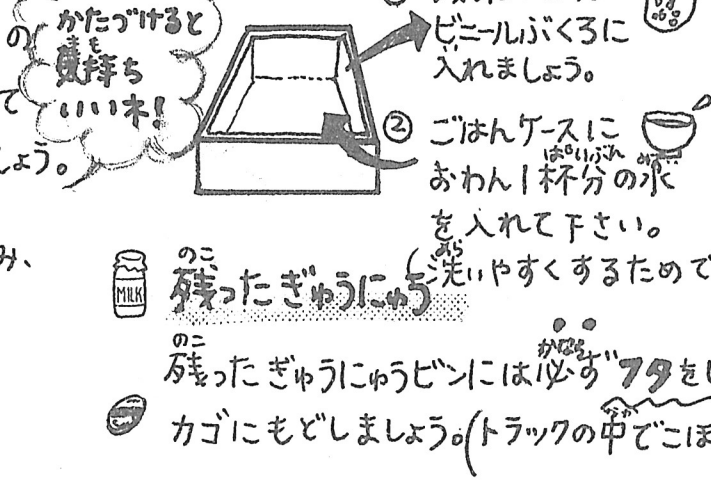 かたづけると
気持ち
いいネ!
の
て
しょう。
み、
ビニールぶくろに
入れましょう。
② ごはんケースに
おわん1杯分の水
を入れて下さい。
(洗いやすくするためで
MILK
残ったぎゅうにゅう
残ったぎゅうにゅうビンには必ずフタをし
カゴにもどしましょう。(トラックの中でこぼ